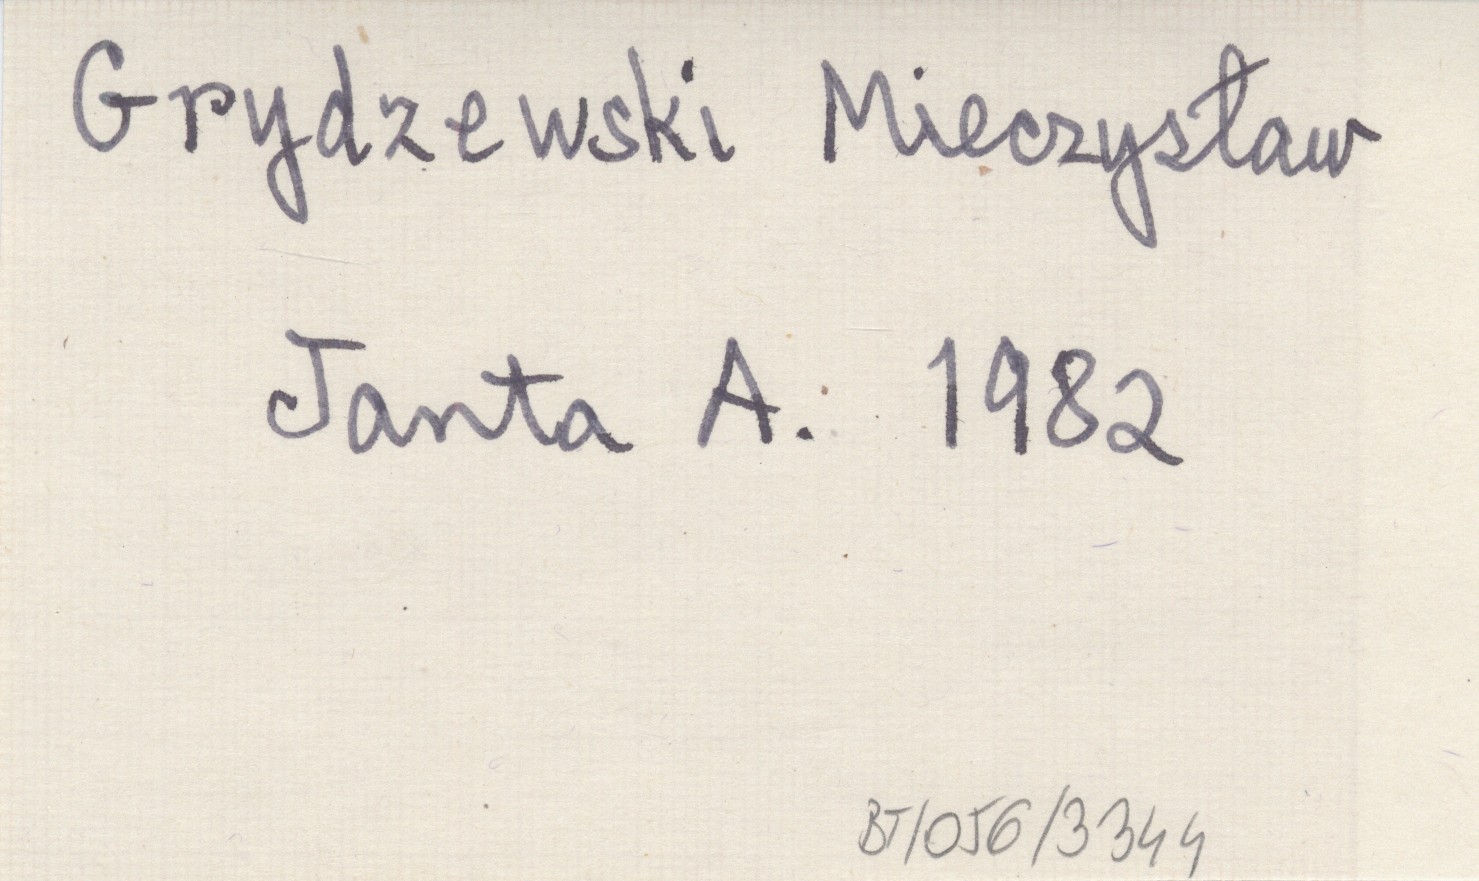 Grydzewski Mieczysław
Janta A. 1982
BT/056/3344